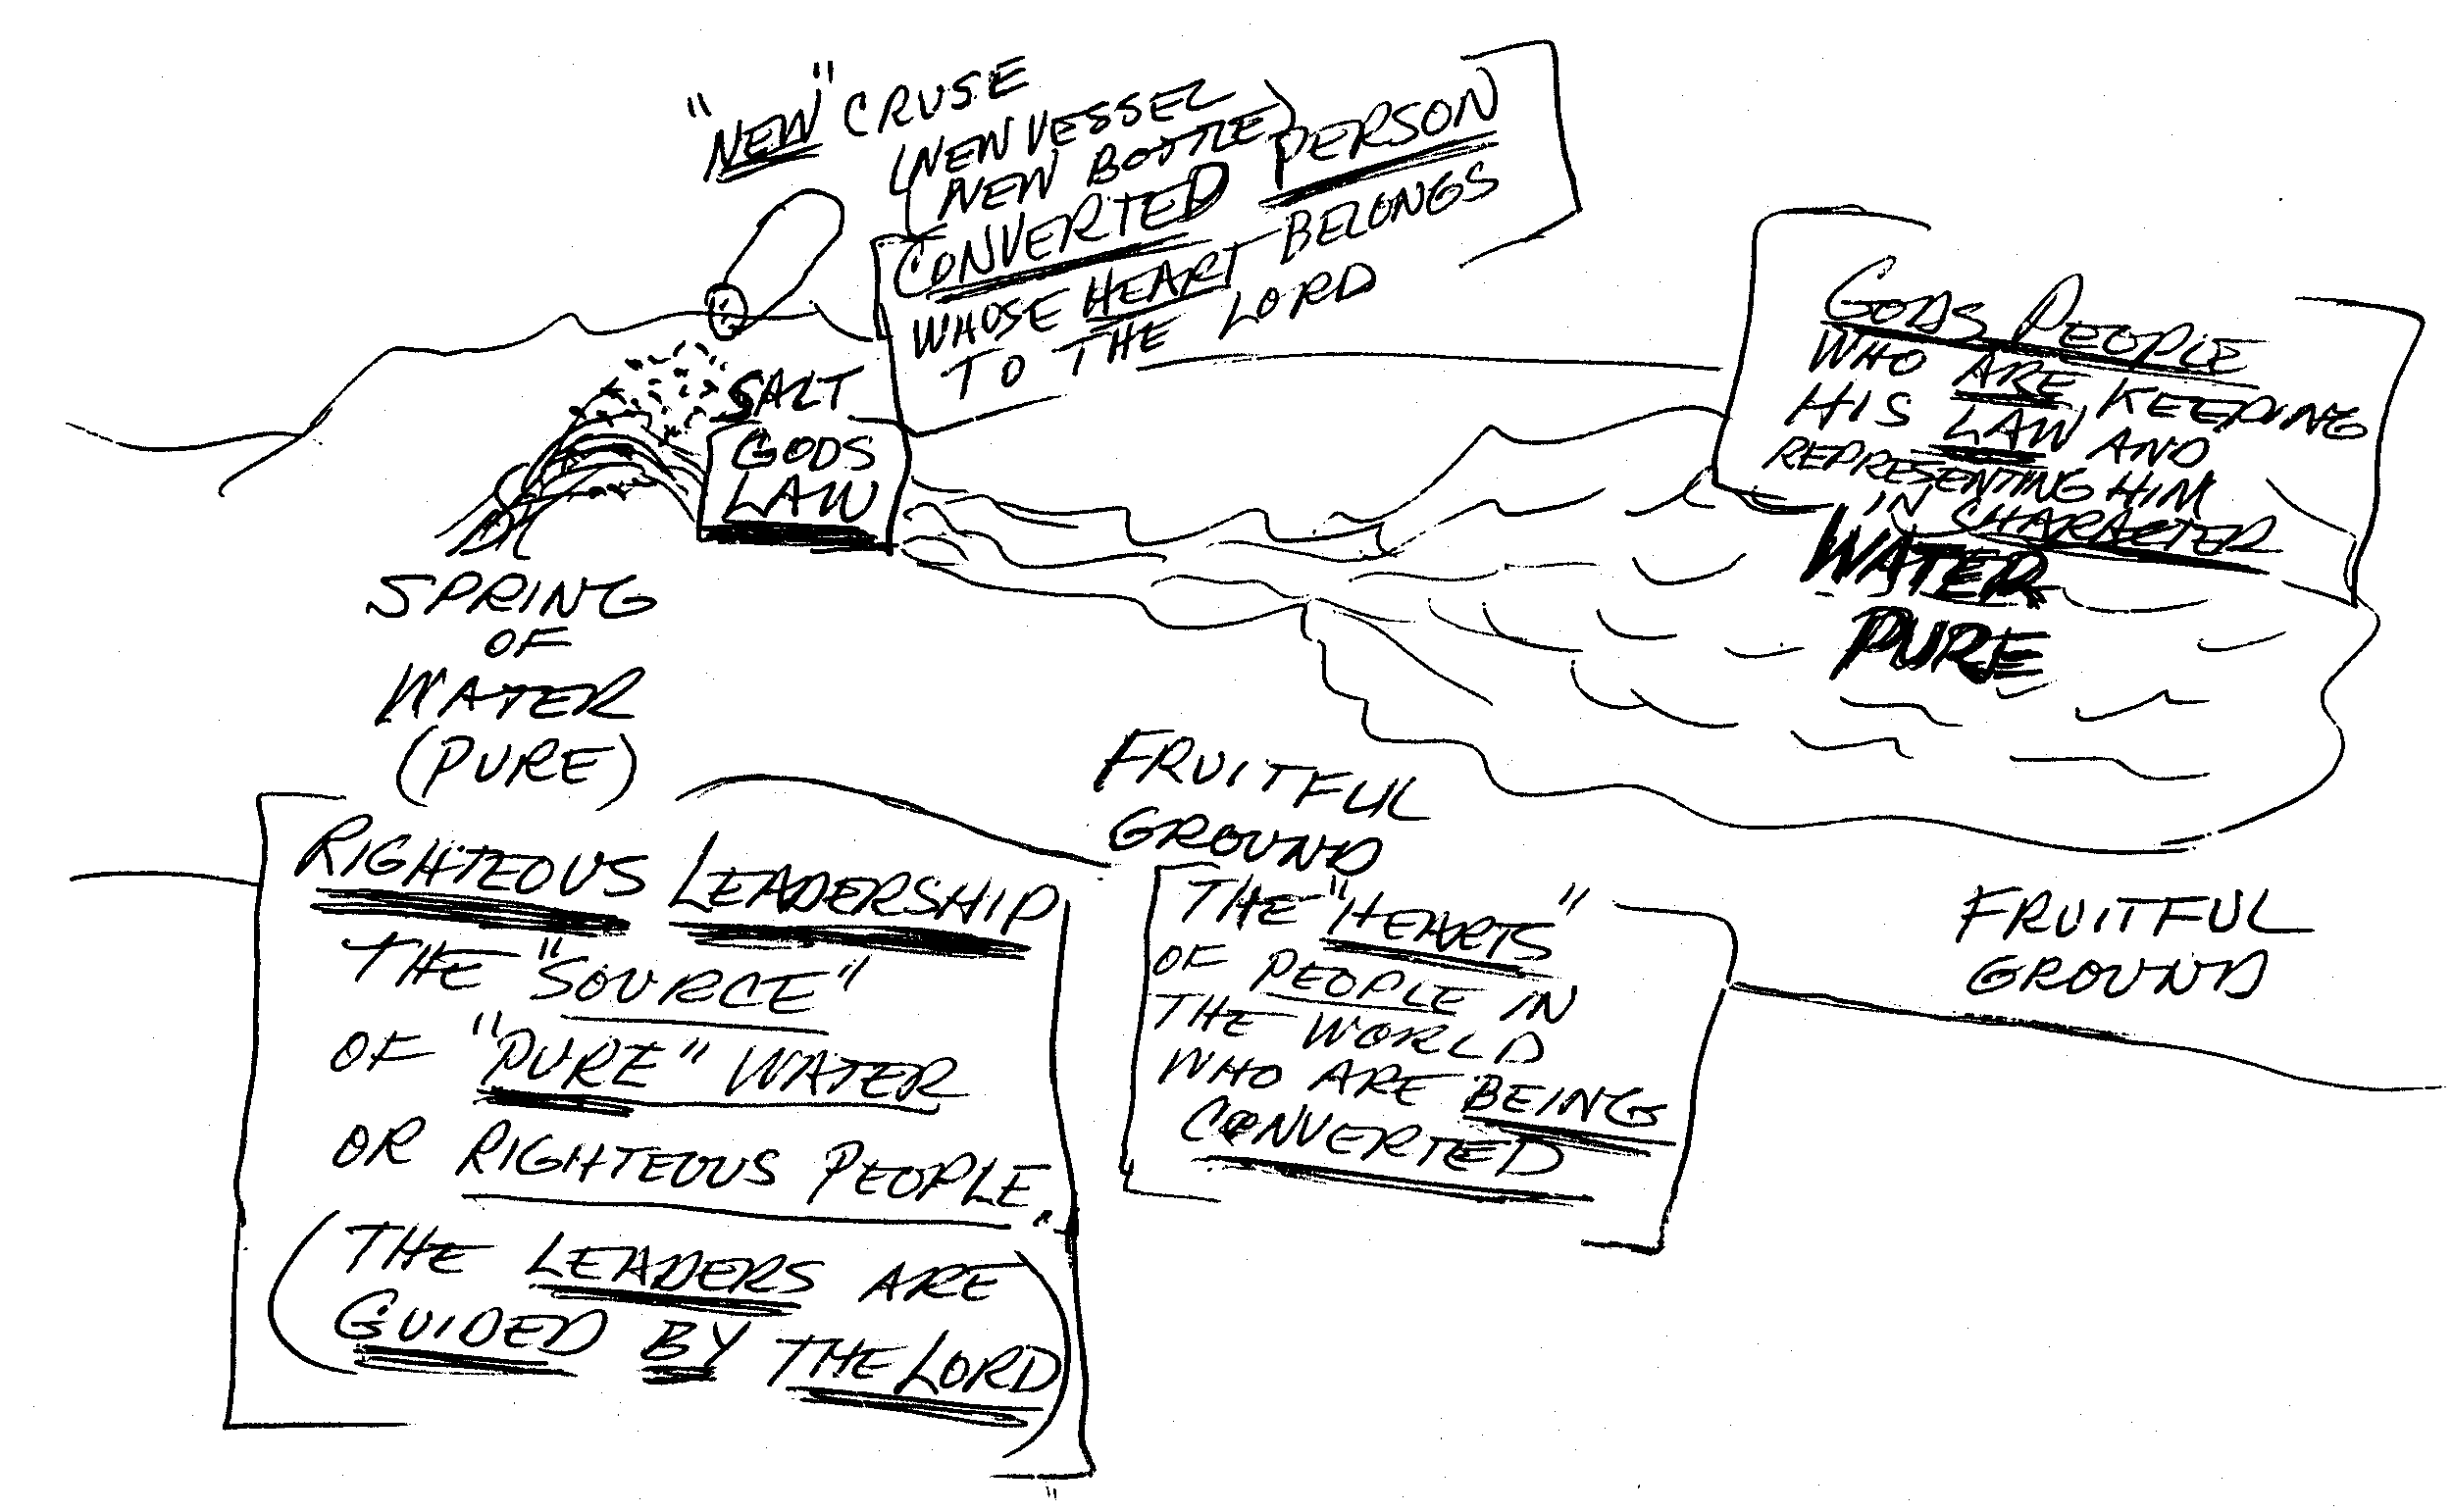 "NEW" CRUSE
(NEW VESSEL
NEW BOTTLE)
CONVERTED PERSON
WHOSE HEART BELONGS
TO THE LORD
SALT
GODS
LAW
GODS PEOPLE
WHO ARE KEEPING
HIS LAW AND
REPRESENTING HIM
IN CHARACTER
WATER
PURE
SPRING
OF
WATER
(PURE)
RIGHTEOUS LEADERSHIP
THE "SOURCE"
OF "PURE" WATER
OR RIGHTEOUS PEOPLE.
(THE LEADERS ARE
GUIDED BY THE LORD)
FRUITFUL
GROUND
THE "HEARTS"
OF PEOPLE IN
THE WORLD
WHO ARE BEING
CONVERTED
FRUITFUL
GROUND